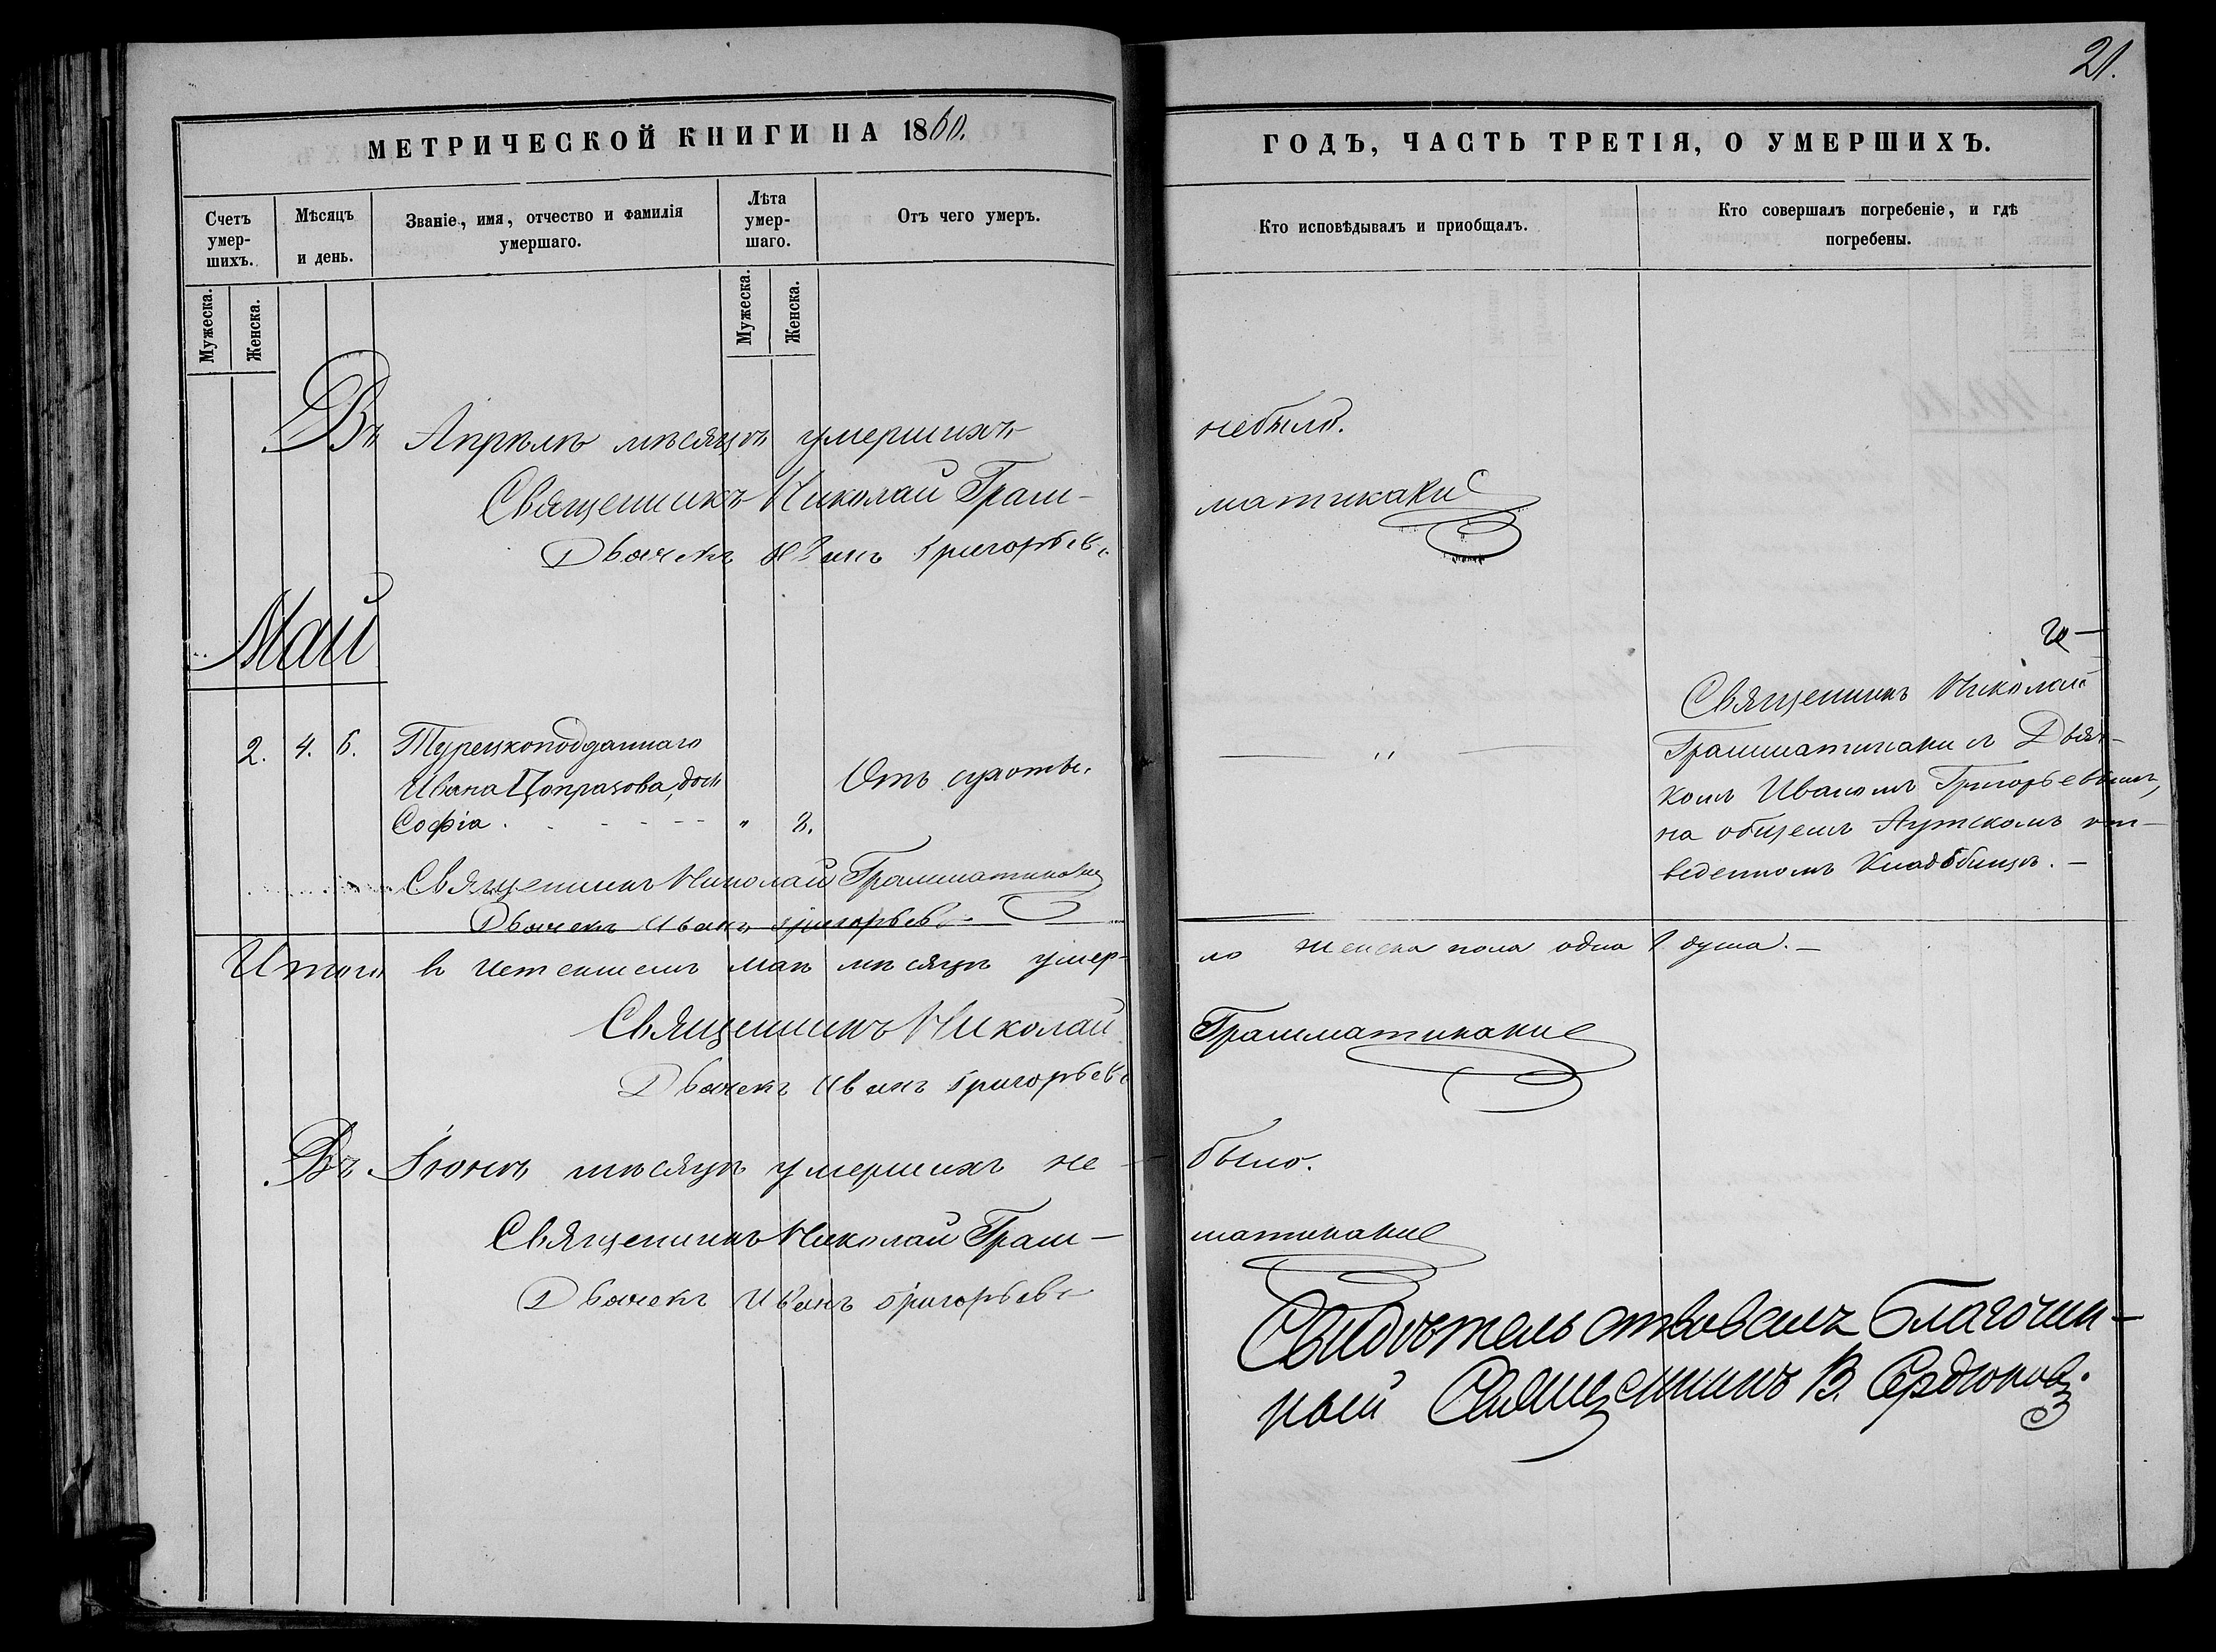 21.
МЕТРИЧЕСКОЙ КНИГИ НА 1860.
ГОДЪ, ЧАСТЬ ТРЕТІЯ, О УМЕРШИХЪ.
Счетъ умер-шихъ.
Мѣсяцъ и день.
Званіе, имя, отчество и фамилія умершаго.
Лѣта умер-шаго.
Отъ чего умеръ.
Кто исповѣдывалъ и пріобщалъ.
Кто совершалъ погребеніе, и гдѣ погребены.
Мужеска.
Женска.
Мужеска.
Женска.
Въ Апрѣлѣ мѣсяцѣ умершихъ небыло.
Священникъ Николай Грам-матикаки
Дьячекъ Иванъ Григорьевъ
Май
2. 4. 6. Турецкоподданнаго
Ивана дочь
Софія " 2.
Отъ сухоты.
"
Священникъ Николай
Грамматикаки съ Дьяч-
комъ Иваномъ Григорьевымъ,
на общемъ Аутскомъ от-
веденномъ Кладбищѣ.
Священникъ Николай Грамматикаки
Дьячекъ Иванъ Григорьевъ
Итого в истекшемъ маѣ мѣсяцѣ умер-ло женска пола одна 1 душа.
Священникъ Николай Грамматикаки
Дьячекъ Иванъ Григорьевъ
Въ Іюнѣ мѣсяцѣ умершихъ не было.
Священникъ Николай Грам-матикаки
Дьячекъ Иванъ Григорьевъ
Свидѣтельствовалъ Благочин-
ный Священникъ В.